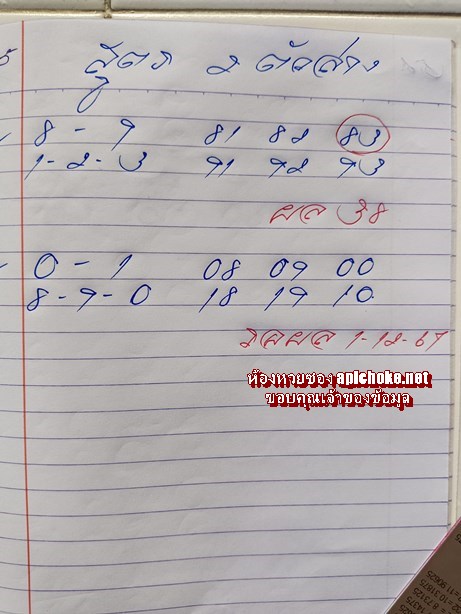 สูตร 2 ตัวล่าง
8 - 9 81 82 83
1-2-3 91 92 93
ผล 38
0 - 1 08 09 00
8-9-0 18 19 10
รอผล 1-12-67
ห้องหวยซอง apichoke.net
ขอบคุณเจ้าของข้อมูล